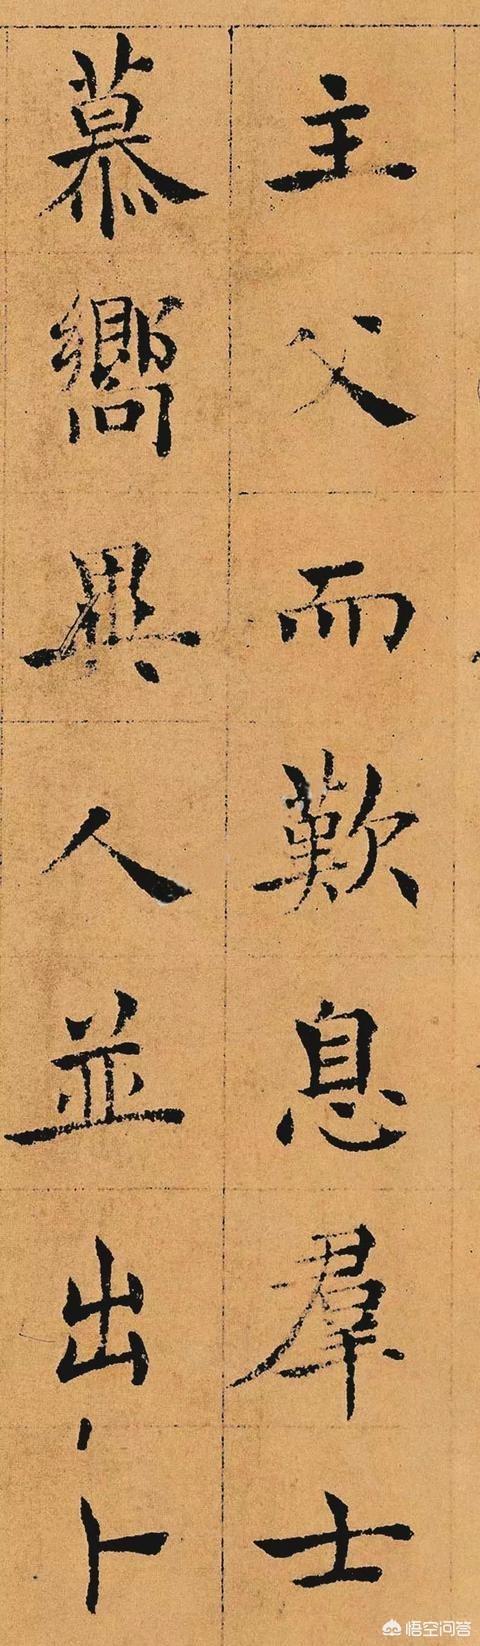 主父而歎息羣士
慕嚮異人並出卜
悟空问答